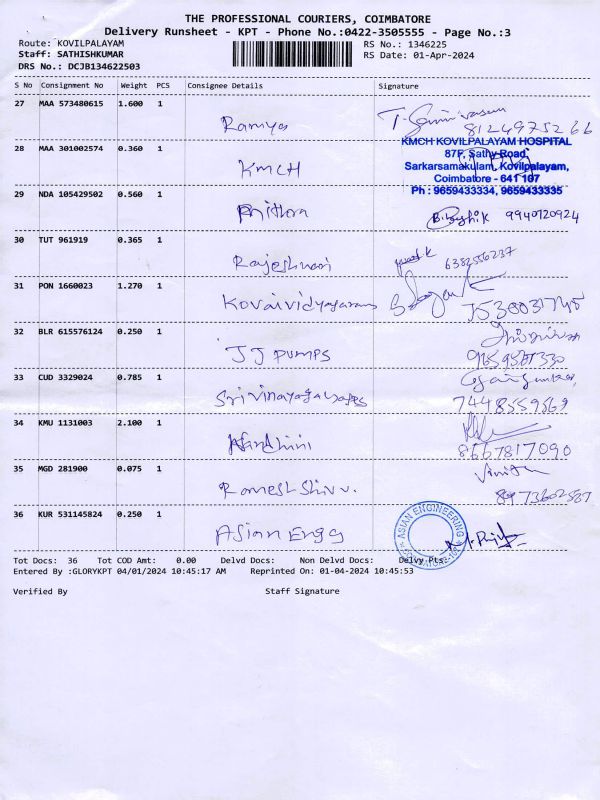 THE PROFESSIONAL COURIERS, COIMBATORE
Delivery Runsheet - KPT - Phone No.:0422-3505555 - Page No.:3
Route: KOVILPALAYAM RS No.: 1346225
Staff: SATHISHKUMAR RS Date: 01-Apr-2024
DRS No.: DCJB134622503
S No Consignment No Weight PCS Consignee Details Signature
27 MAA 573480615 1.600 1 Ramya 8124975266
28 MAA 301002574 0.360 1 KMCH
KMCH KOVILPALAYAM HOSPITAL
87F, Sathy Road,
Sarkarsamakulam, Kovilpalayam,
Coimbatore - 641 107
Ph : 9659433334, 9659433335
29 NDA 105429502 0.560 1 9940720924
30 TUT 961919 0.365 1 Rajeshwari 6382556237
31 PON 1660023 1.270 1 Kovaividyaasram
32 BLR 615576124 0.250 1 JJ PUMPS
33 CUD 3329024 0.785 1 7448559569
34 KMU 1131003 2.100 1 Nandhini 8667817090
35 MGD 281900 0.075 1 Ramesh Shiv v. 8973602587
36 KUR 531145824 0.250 1 Asian Engg
ASIAN ENGINEERING
Tot Docs: 36 Tot COD Amt: 0.00 Delvd Docs: Non Delvd Docs: Delvy Pts:
Entered By :GLORYKPT 04/01/2024 10:45:17 AM Reprinted On: 01-04-2024 10:45:53
Verified By Staff Signature